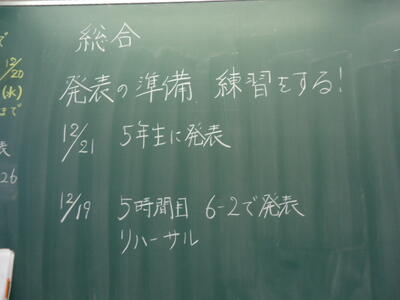 総合
発表の準備、練習をする!
12/21 5年生に発表
12/19 5時間目 6-2で発表
リハーサル
12/20
(水)
まで
表
26